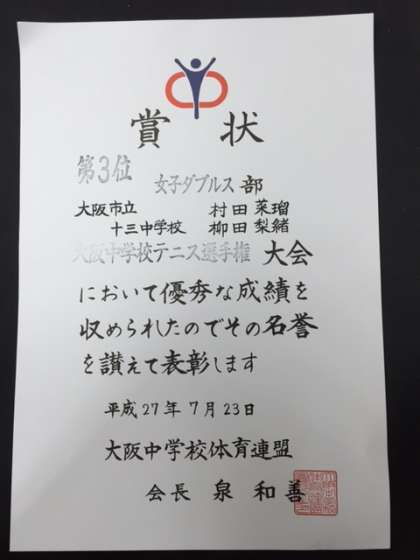 賞状
第3位
女子ダブルス 部
大阪市立 村田 茉瑠
十三中学校 柳田 梨緒
大阪中学校テニス選手権 大会
において優秀な成績を
収められたのでその名誉
を讃えて表彰します
平成27年7月23日
大阪中学校体育連盟
会長 泉 和善